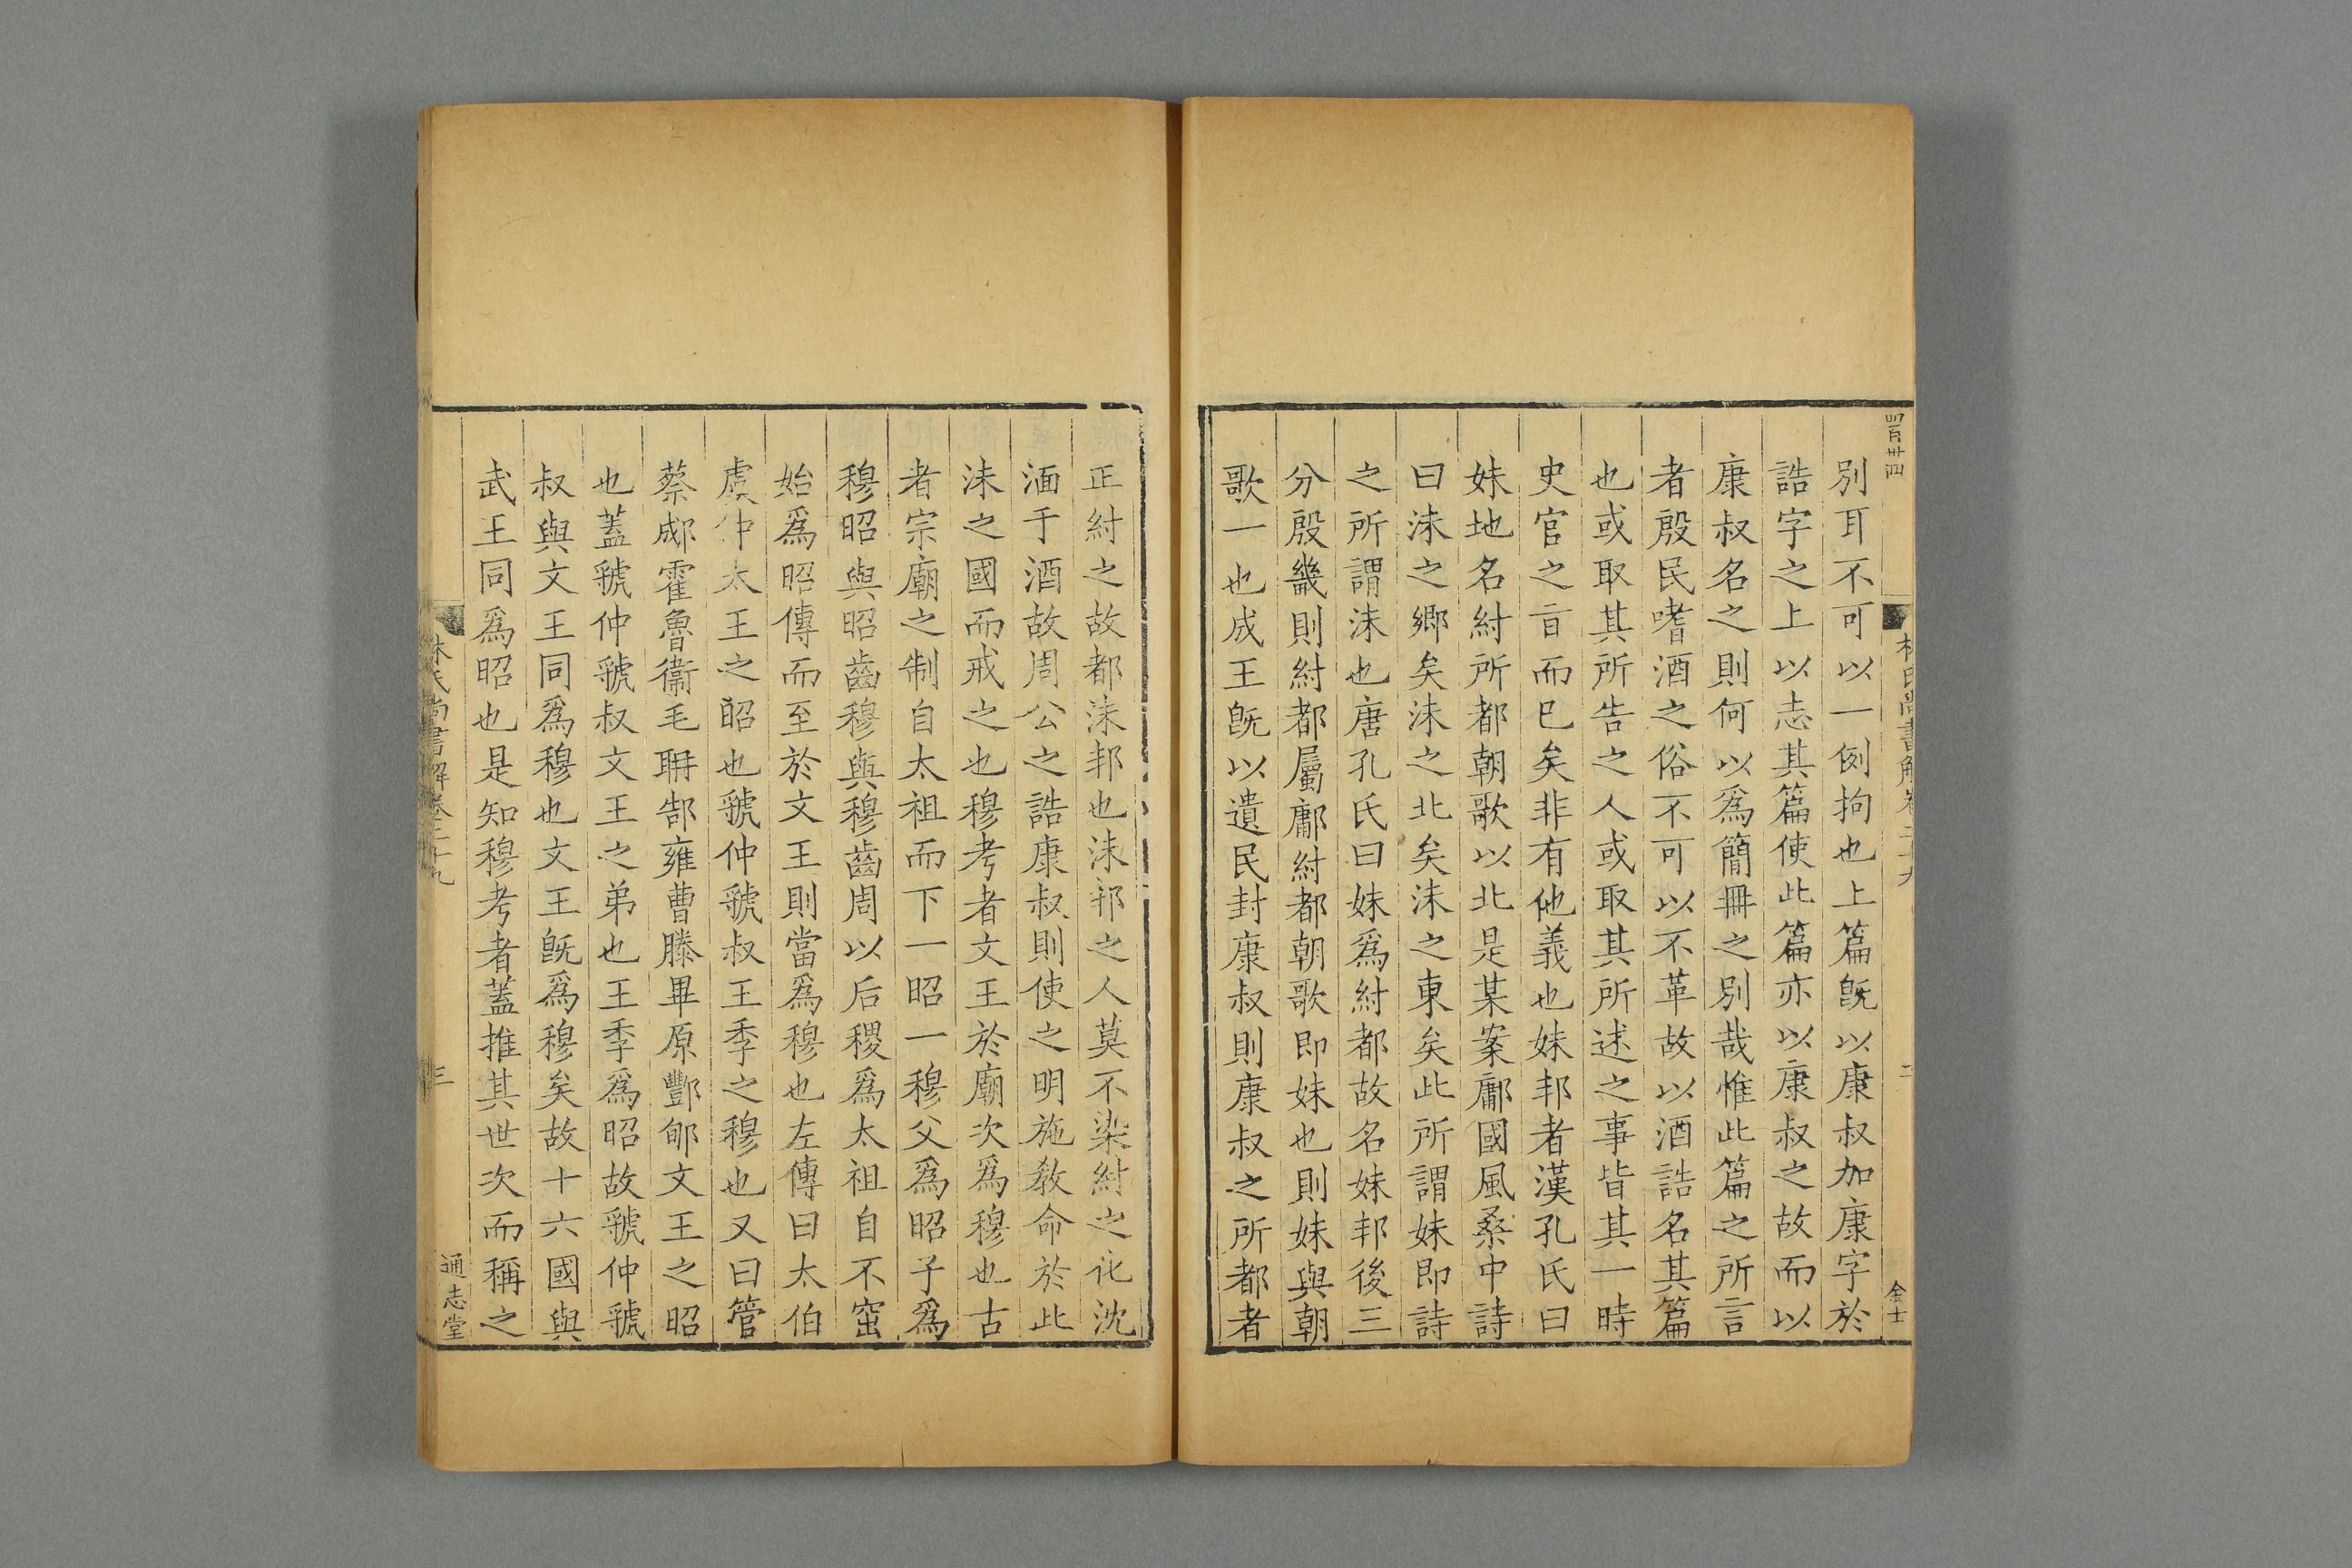 四百廿四
林氏尚書解卷二十九
二
金士
別耳不可以一例拘也上篇旣以康叔加康字於
誥字之上以志其篇使此篇亦以康叔之故而以
康叔名之則何以爲簡冊之別哉惟此篇之所言
者殷民嗜酒之俗不可以不革故以酒誥名其篇
也或取其所告之人或取其所述之事皆其一時
史官之㫖而已矣非有他義也妹邦者漢孔氏曰
妹地名紂所都朝歌以北是某案鄘國風桑中詩
曰沬之鄉矣沬之北矣沬之東矣此所謂妹即詩
之所謂沬也唐孔氏曰妹爲紂都故名妹邦後三
分殷畿則紂都屬鄘紂都朝歌即妹也則妹與朝
歌一也成王旣以遺民封康叔則康叔之所都者
正紂之故都沬邦也沬邦之人莫不染紂之化沈
湎于酒故周公之誥康叔則使之明施敎命於此
沬之國而戒之也穆考者文王於廟次爲穆也古
者宗廟之制自太祖而下一昭一穆父爲昭子爲
穆昭與昭齒穆與穆齒周以后稷爲太祖自不窋
始爲昭傳而至於文王則當爲穆也左傳曰太伯
虞仲太王之昭也虢仲虢叔王季之穆也又曰管
蔡郕霍魯衞毛聃郜雍曹滕畢原酆郇文王之昭
也蓋虢仲虢叔文王之弟也王季爲昭故虢仲虢
叔與文王同爲穆也文王旣爲穆矣故十六國與
武王同爲昭也是知穆考者蓋推其世次而稱之
林氏尚書解卷二十九
三
通志堂